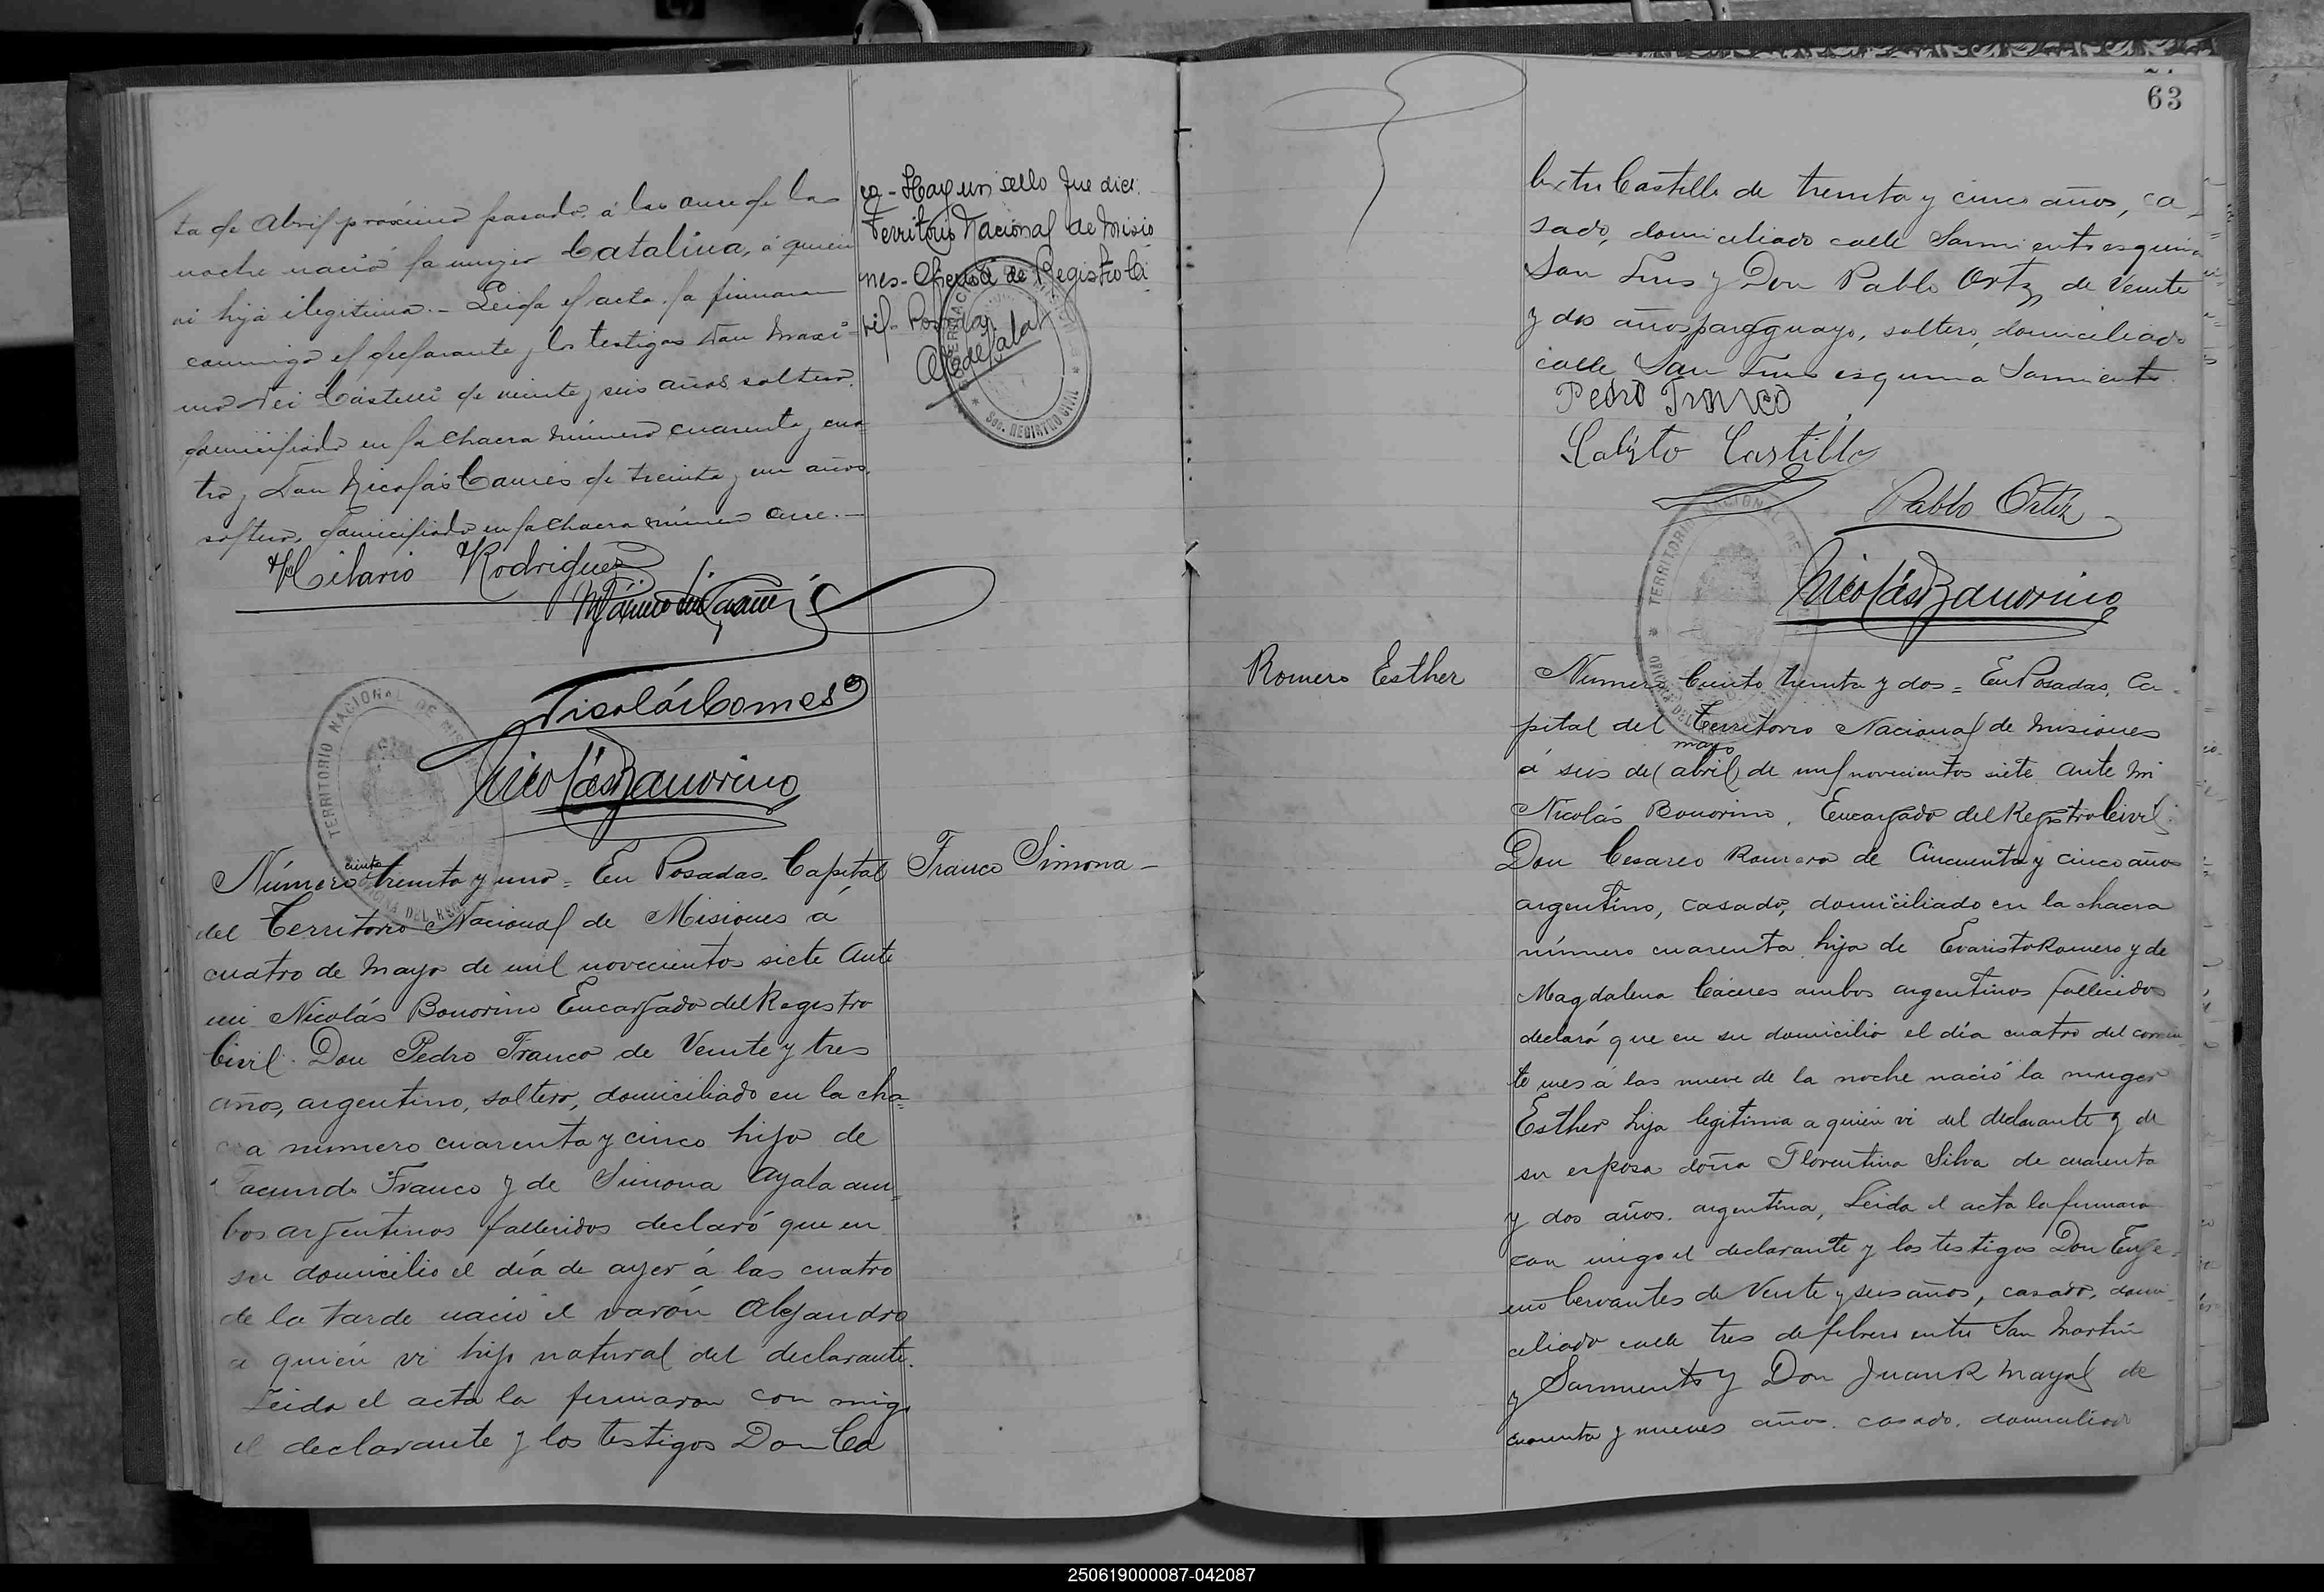 ta de Abril próximo pasado, á las once de la
noche nació la muger Catalina, á quien
vi hija ilegitima. - Leida el acta la firmaron
conmigo el declarante y los testigos Don Maxi-
mo Dei Castelli de veinte y seis años soltero,
domiciliado en la chacra número cuarenta y cua-
tro y Don Nicolás Comes de treinta y un años,
soltero, domiciliado en la chacra número once. -
Hilario Rodriguez
Nicolás Comes
Nicolás Bonorino
TERRITORIO NACIONAL DE MISIONES
ca - Hay un sello que dice:
Territorio Nacional de Misio
nes - Oficina de Registro Ci
vil - Posadas.
SEC. REGISTRO CIVIL
Franco Simona -
Número ciento treinta y uno = En Posadas, Capital
del Territorio Nacional de Misiones á
cuatro de Mayo de mil novecientos siete Ante
mi Nicolás Bonorino Encargado del Registro
Civil. Don Pedro Franco de Veinte y tres
años, argentino, soltero, domiciliado en la cha=
cra número cuarenta y cinco hijo de
Facundo Franco y de Simona Ayala am=
bos argentinos fallecidos declaró que en
su domicilio el día de ayer á las cuatro
de la tarde nació el varón Alejandro
a quién vi hijo natural del declarante.
Leida el acta la firmaron con migo
el declarante y los testigos Don Ca
63
lixto Castillo de treinta y cinco años, ca-
sado, domiciliado calle Sarmiento esquina
San Luis y Don Pablo Ortz de Veinte
y dos años paraguayo, soltero, domiciliado
calle San Luis esquina Sarmiento.
Pedro Franco
Calisto Castillo
Pablo Ortiz
Nicolás Bonorino
TERRITORIO NACIONAL DE
Romero Esther
Número Ciento treinta y dos = En Posadas, Ca-
pital del Territorio Nacional de Misiones
mayo
á seis de (abril) de mil novecientos siete Ante mi
Nicolás Bonorino, Encargado del Registro Civil.
Don Cesareo Romero de Cincuenta y cinco años
argentino, casado, domiciliado en la chacra
número cuarenta hijo de Evaristo Romero y de
Magdalena Cáceres ambos argentinos fallecidos
declaró que en su domicilio el día cuatro del corrien-
te mes á las nueve de la noche nació la muger
Esther hija legitima a quien vi del declarante y de
su esposa doña Florentina Silva de cuarenta
y dos años, argentina, Leida el acta la firmaron
con migo el declarante y los testigos Don Euge=
nio Cervantes de Veinte y seis años, casado, domi-
ciliado calle tres de febrero entre San Martin
y Sarmiento y Don Juan R Mayol de
cuarenta y nueves años. casado. domiciliado
250619000087-042087